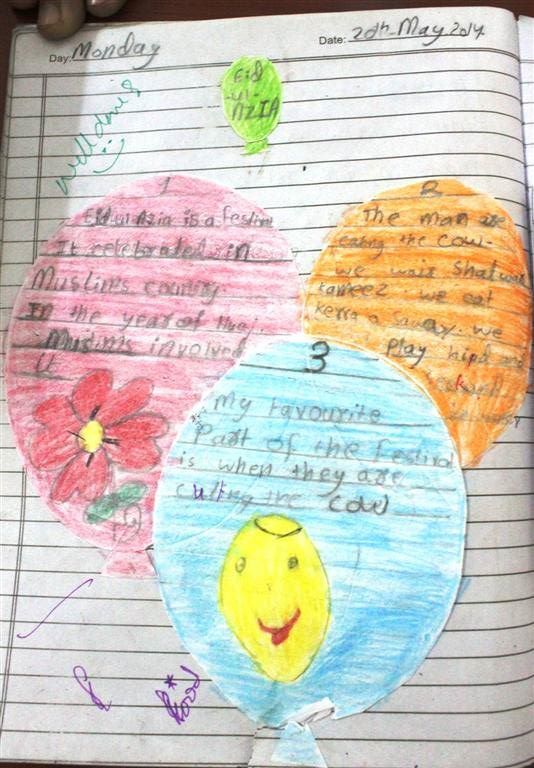 Day: Monday
Date: 20th May 2014
welldone
Eid
-ul-
AZIA
1
Eid ul Azia is a festival
It celebrated in
Muslims country.
In the year of Huj
Muslims involved
it
2
The man is
eating the cow.
we wair Shalwar
kameez. we eat
we
play hide and
3
My favourite
Part of the festival
is when they are
cutting the cow
Good